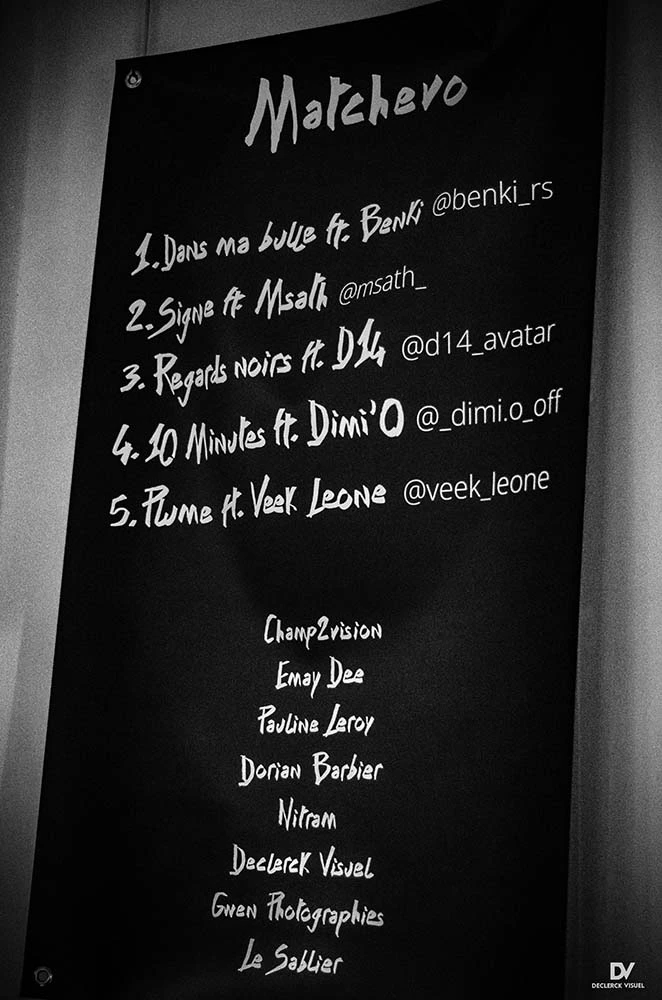 Matchevo
1. Dans ma bulle ft. Benki @benki_rs
2. Signe ft Msath @msath_
3. Regards noirs ft. D14 @d14_avatar
4. 10 Minutes ft. Dimi'O @_dimi.o_off
5. Plume ft. Veek Leone @veek_leone
Champ2vision
Emay Dee
Pauline Leroy
Dorian Barbier
Nitram
Declerck Visuel
Gwen Photographies
Le Sablier
DV
DECLERCK VISUEL